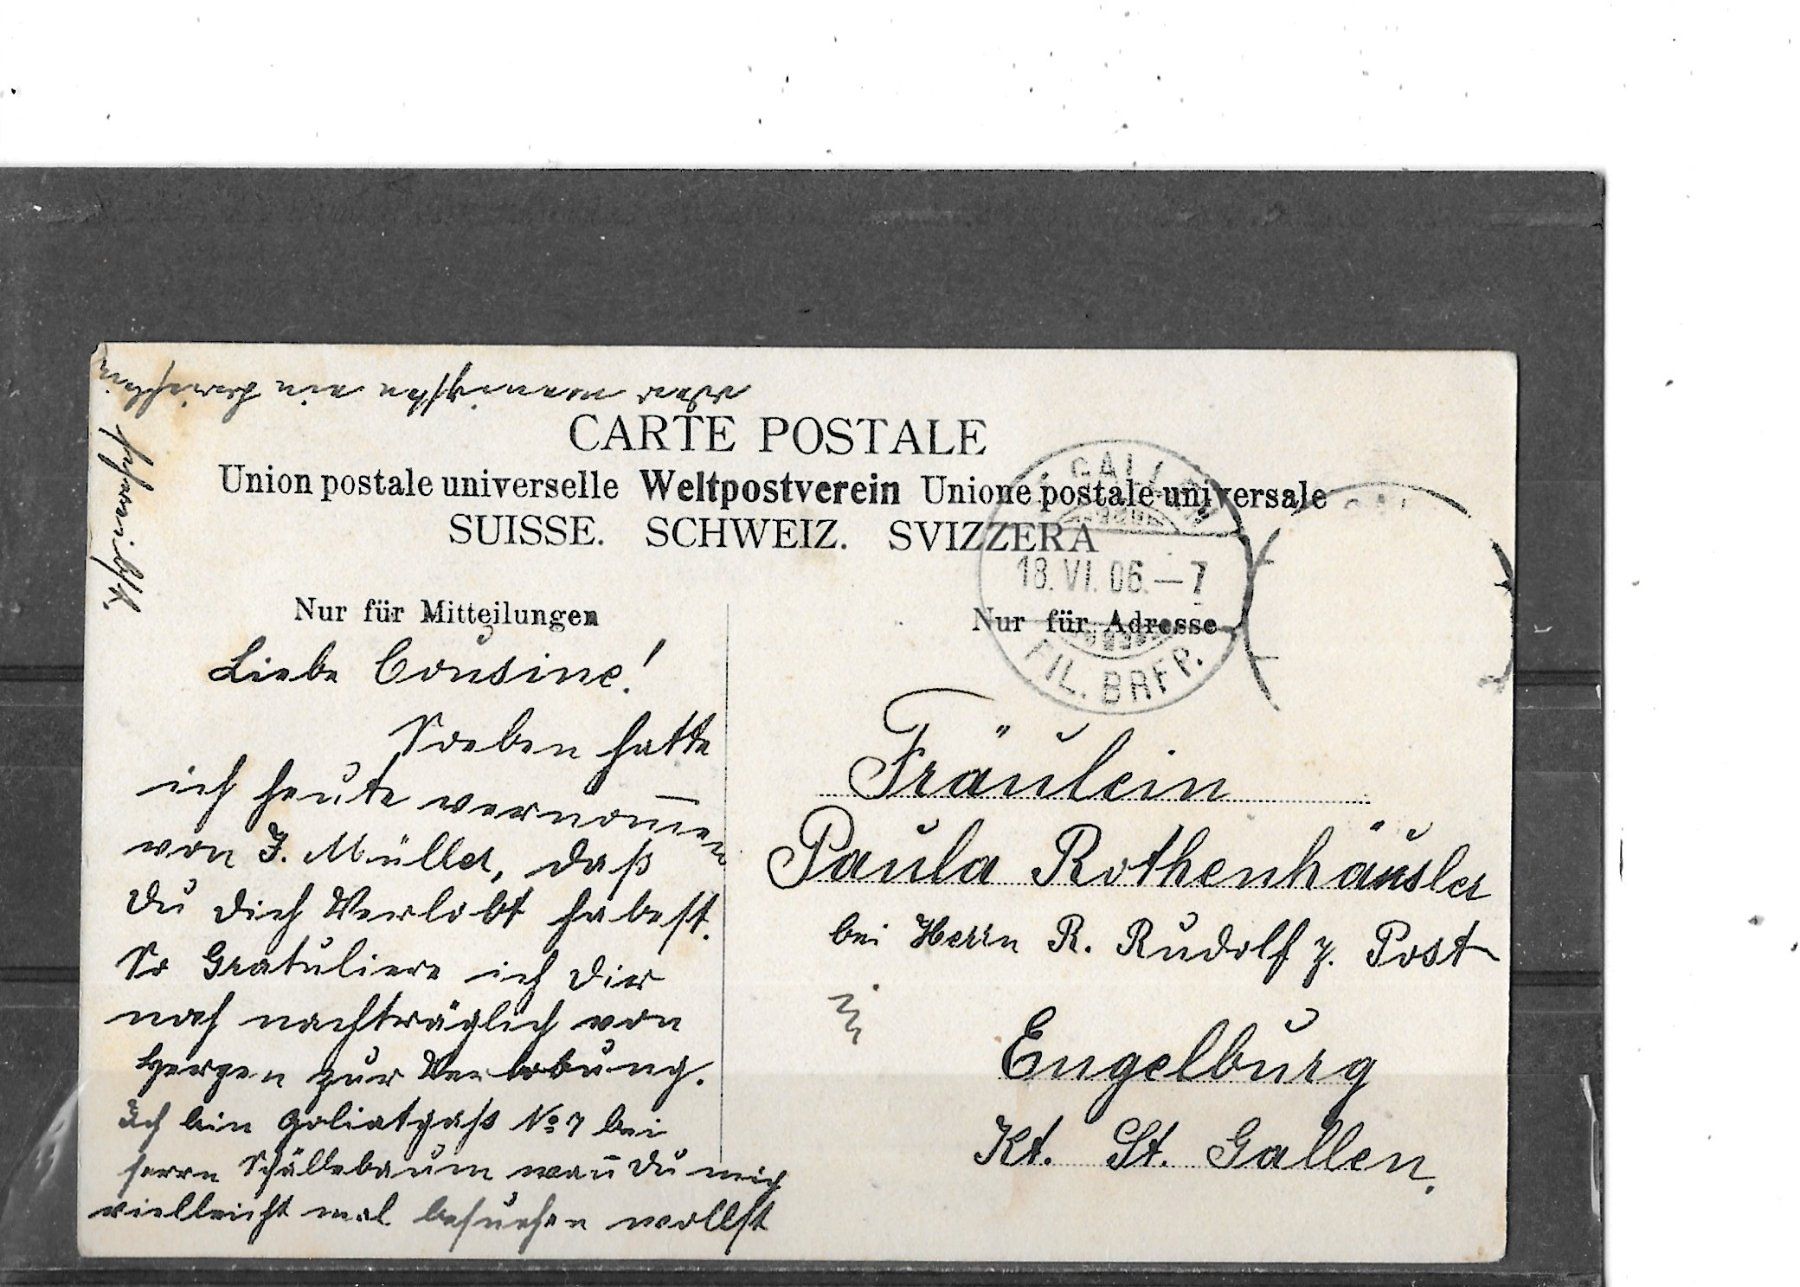 CARTE POSTALE
Union postale universelle Weltpostverein Unione postale universale
SUISSE. SCHWEIZ. SVIZZERA
Nur für Mitteilungen
Nur für Adresse
GALLEN
18. VI. 06.–7
FIL. BRFP.
Liebe Cousine!
Soeben hatte
ich heute vernom̄en
von J. Müller, daß
du dich Verlobt habest.
So Gratuliere ich dir
noch nachträglich von
Herzen zur Verlobung.
Ich bin Goliatgaß No 7 bei
Herrn Schällebaum wan̄ du mich
vielleicht mal besuchen wollst
oder wenigsten ein
Fräulein
Paula Rothenhäusler
bei Herrn R. Rudolf z. Post
in
Engelburg
Kt. St. Gallen.